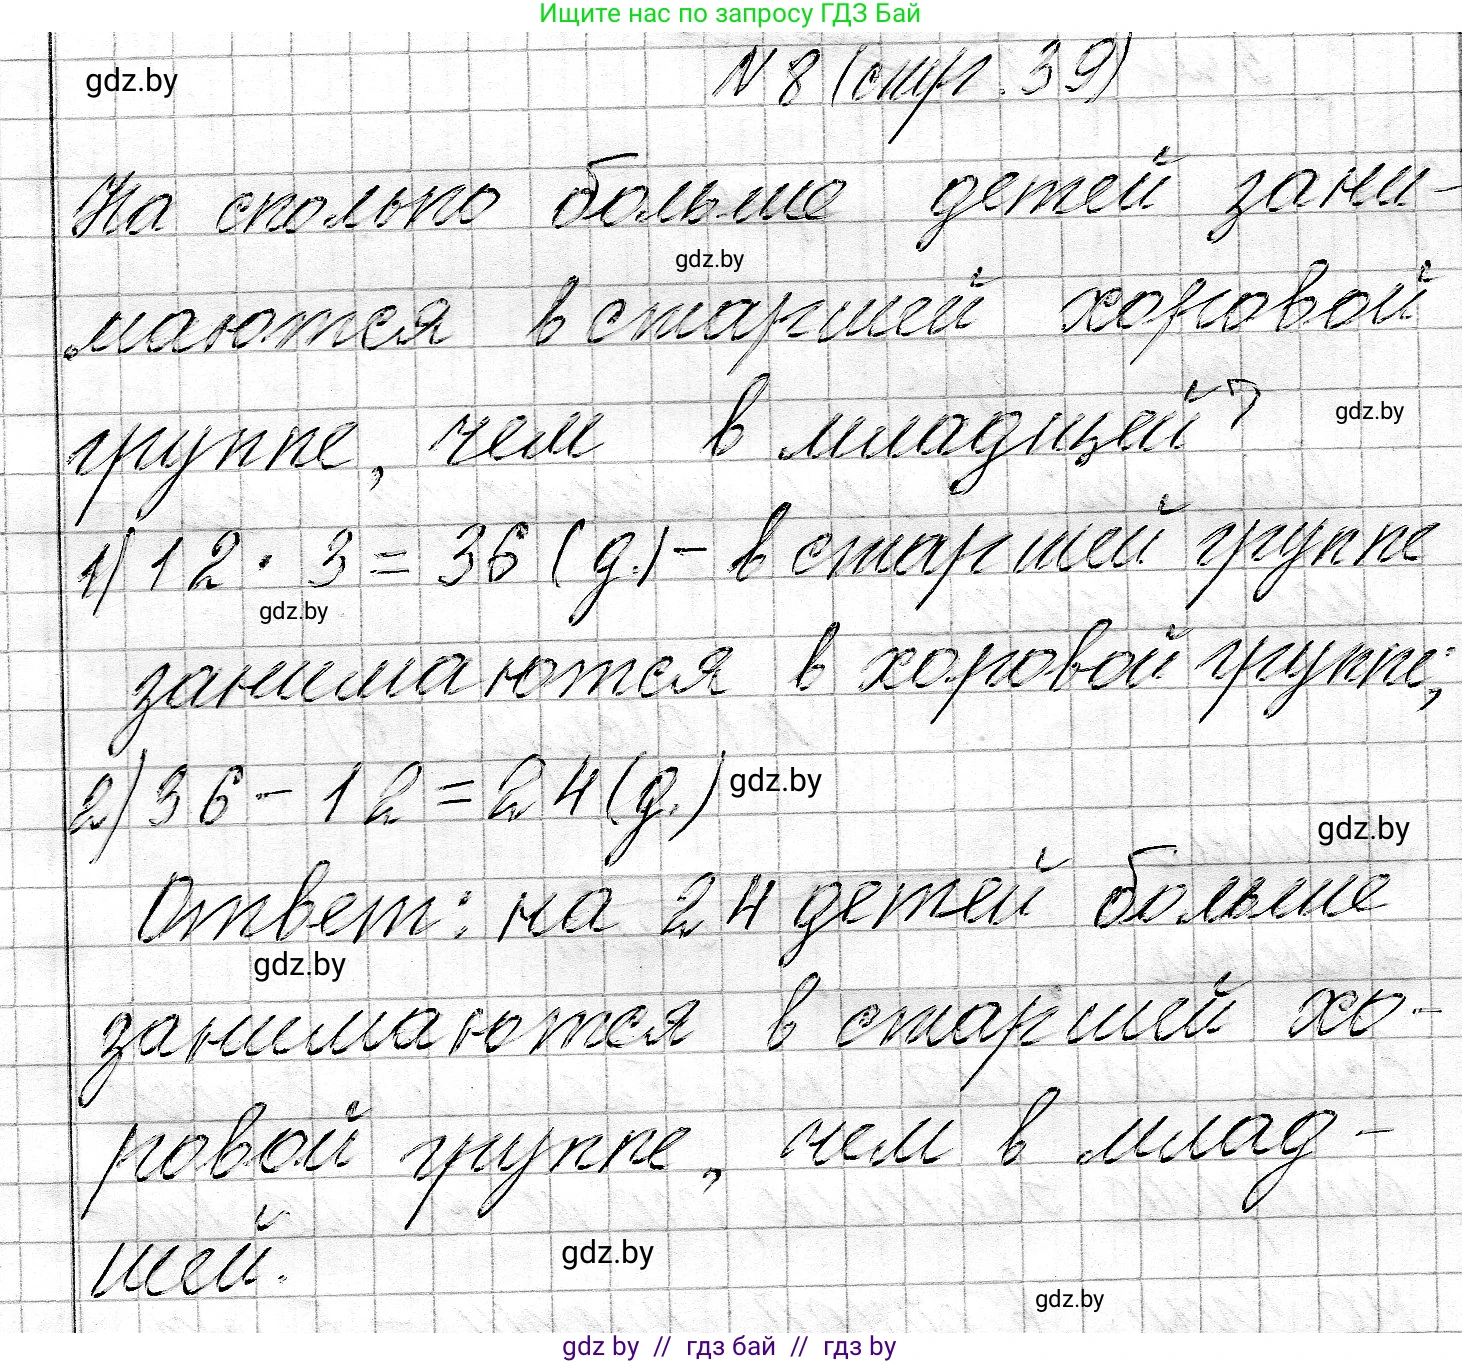 Ищите нас по запросу ГДЗ Бай
gdz.by
N 8 (стр. 39)
На сколько больше детей зани-
gdz.by
маются в старшей хоровой
группе, чем в младшей?
gdz.by
1) 12 · 3 = 36 (д.) - в старшей группе
gdz.by
занимаются в хоровой группе;
2) 36 - 12 = 24 (д.)
gdz.by
gdz.by
Ответ: на 24 детей больше
gdz.by
занимаются в старшей хо-
ровой группе, чем в млад-
шей.
gdz.by
gdz.by
gdz by // гдз бай // гдз by